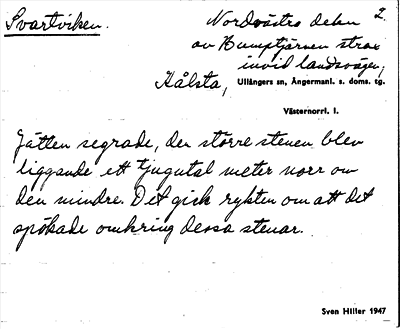 Svartviken.
Nordvästra delen 2.
av Humptjärnen strax
invid landsvägen,
Hålsta, Ullångers sn, Ångermanl. s. doms. tg.
Västernorrl. l.
Jätten segrade, den större stenen blev
liggande ett tjugutal meter norr om
den mindre. Det gick rykten om att det
spökade omkring dessa stenar.
Sven Hiller 1947